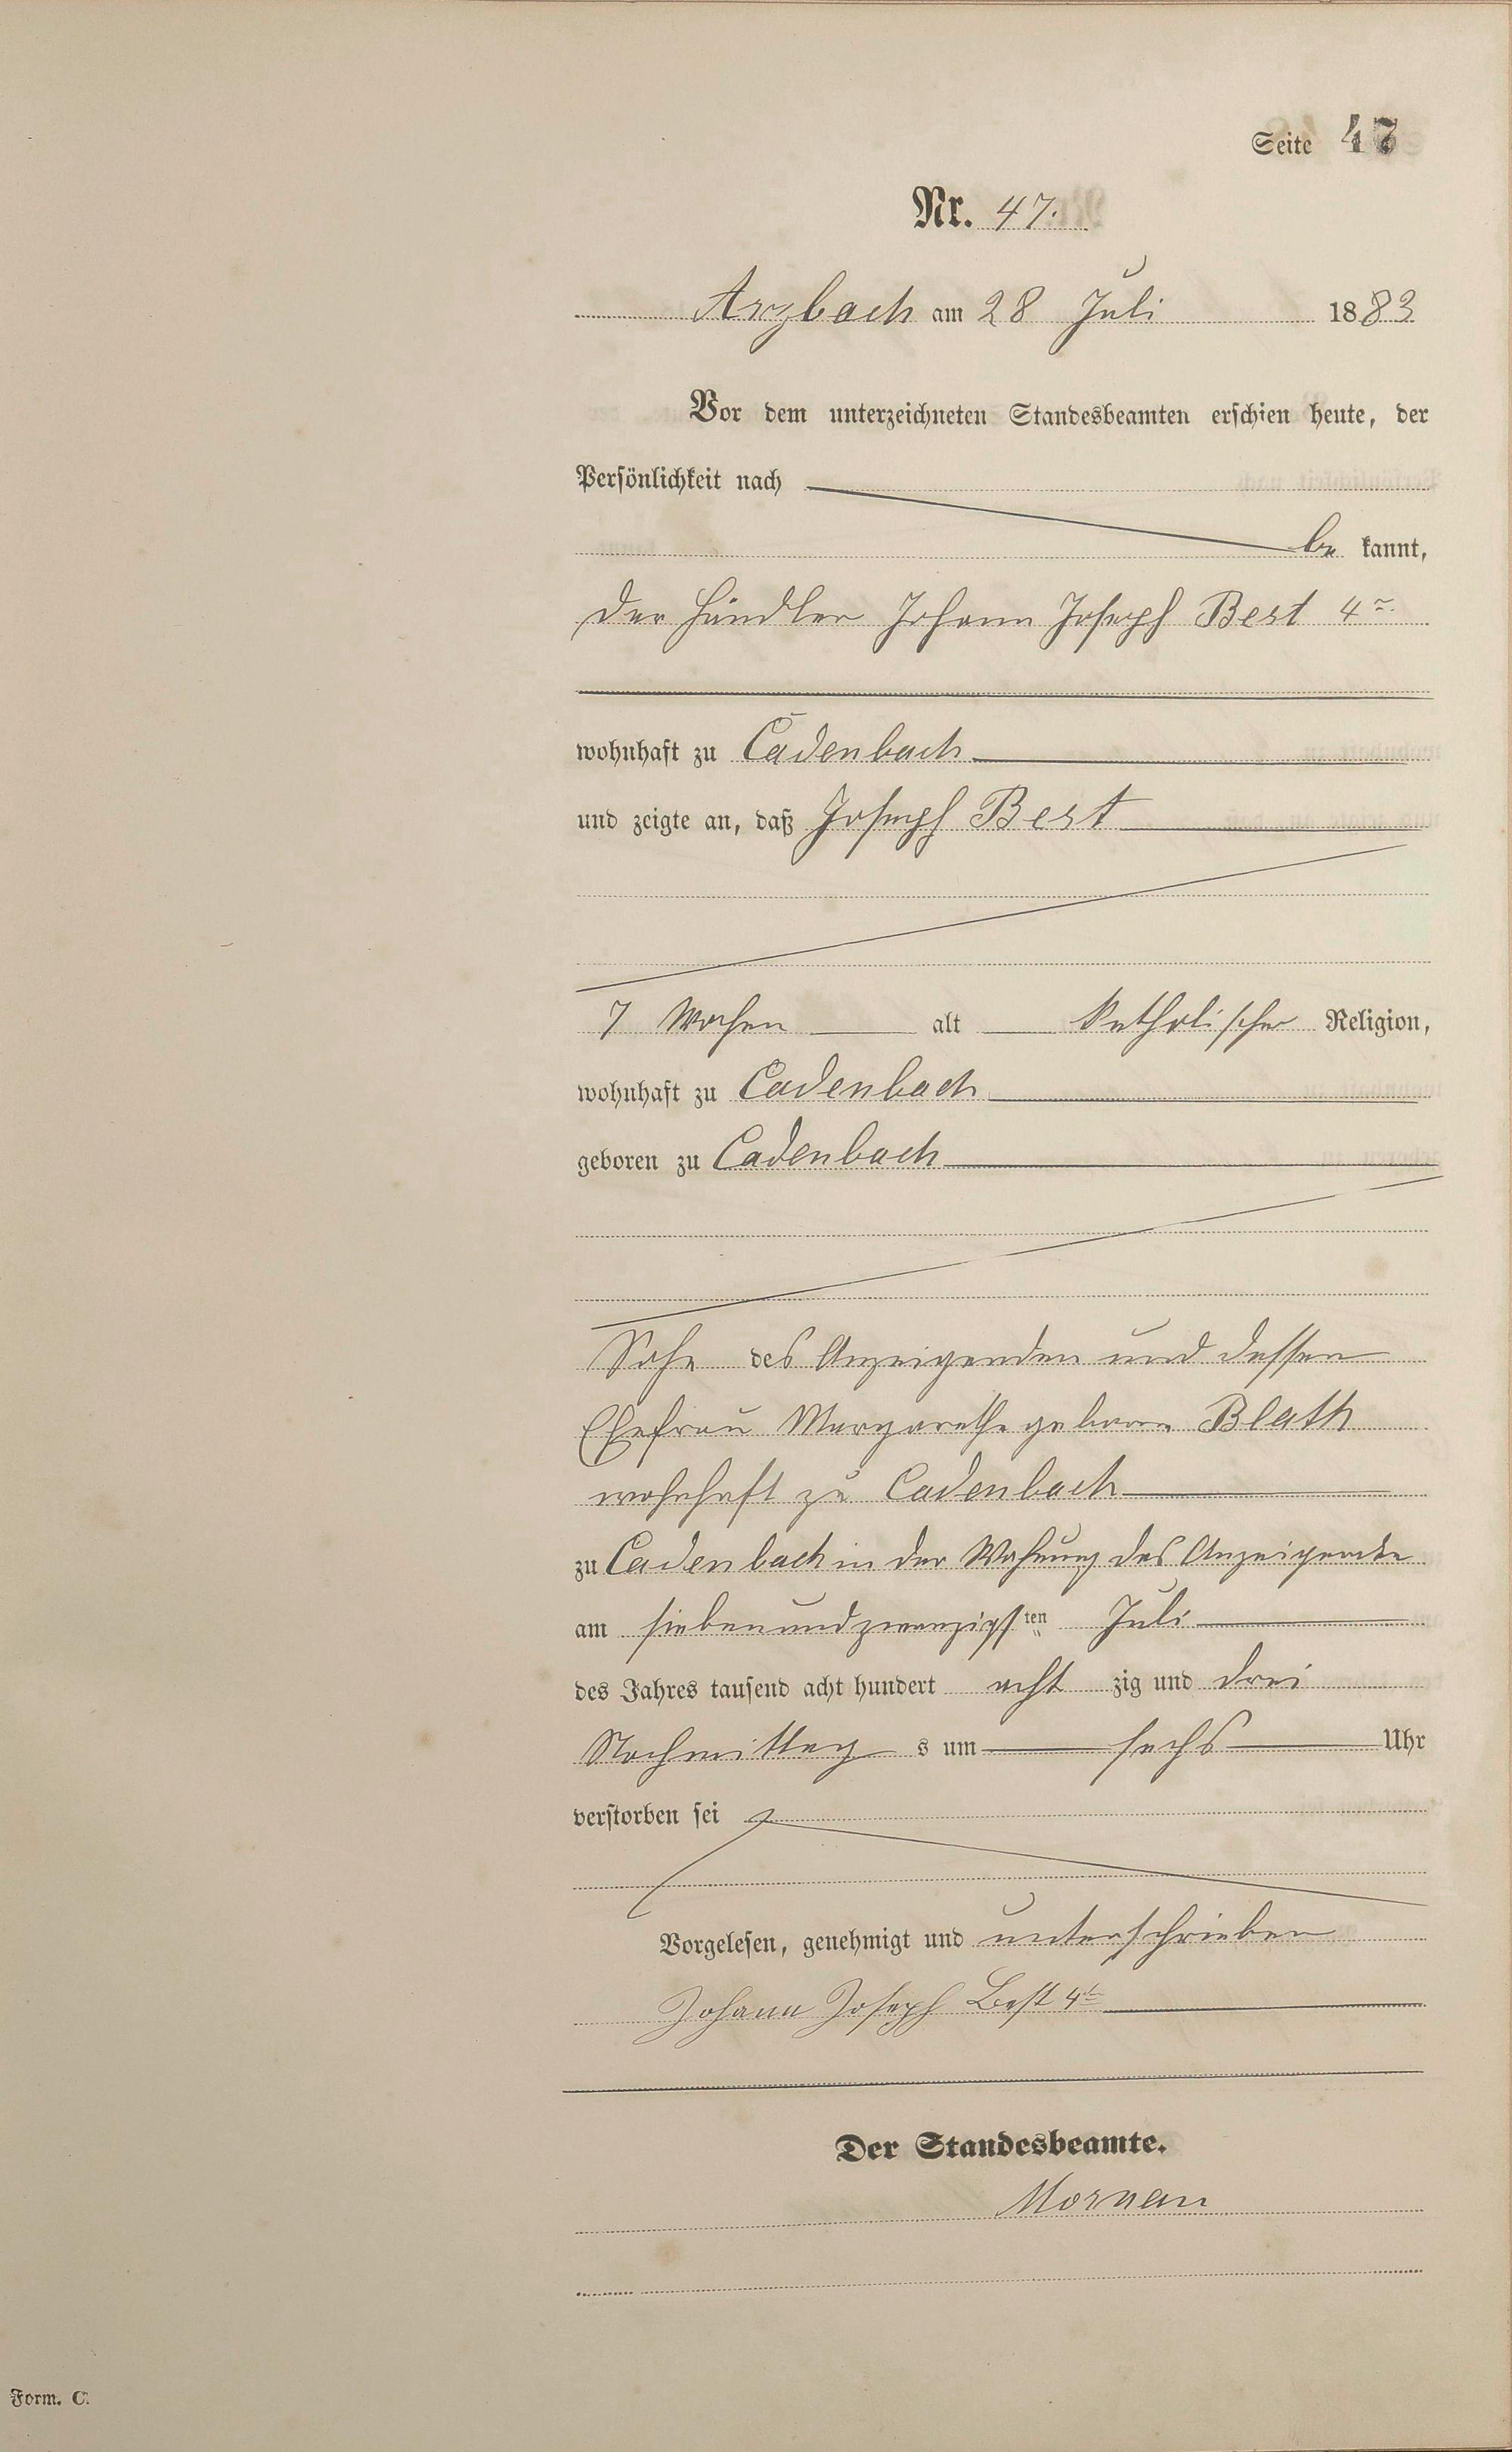 Seite 47
Nr. 47.
Arzbach am 28 Juli 1883
Vor dem unterzeichneten Standesbeamten erschien heute, der
Persönlichkeit nach
be kannt,
der Händler Johann Joseph Best 4r
wohnhaft zu Cadenbach
und zeigte an, daß Joseph Best
7 Wochen alt katholischer Religion,
wohnhaft zu Cadenbach
geboren zu Cadenbach
Sohn des Anzeigenden und dessen
Ehefrau Margarethe geborne Blath
wohnhaft zu Cadenbach
zu Cadenbach in der Wohnung des Anzeigenden
am siebenundzwanzigsten Juli
des Jahres tausend acht hundert acht zig und drei
Nachmittag s um sechs Uhr
verstorben sei
Vorgelesen, genehmigt und unterschrieben
Johann Joseph Best 4t
Der Standesbeamte.
Form. C.